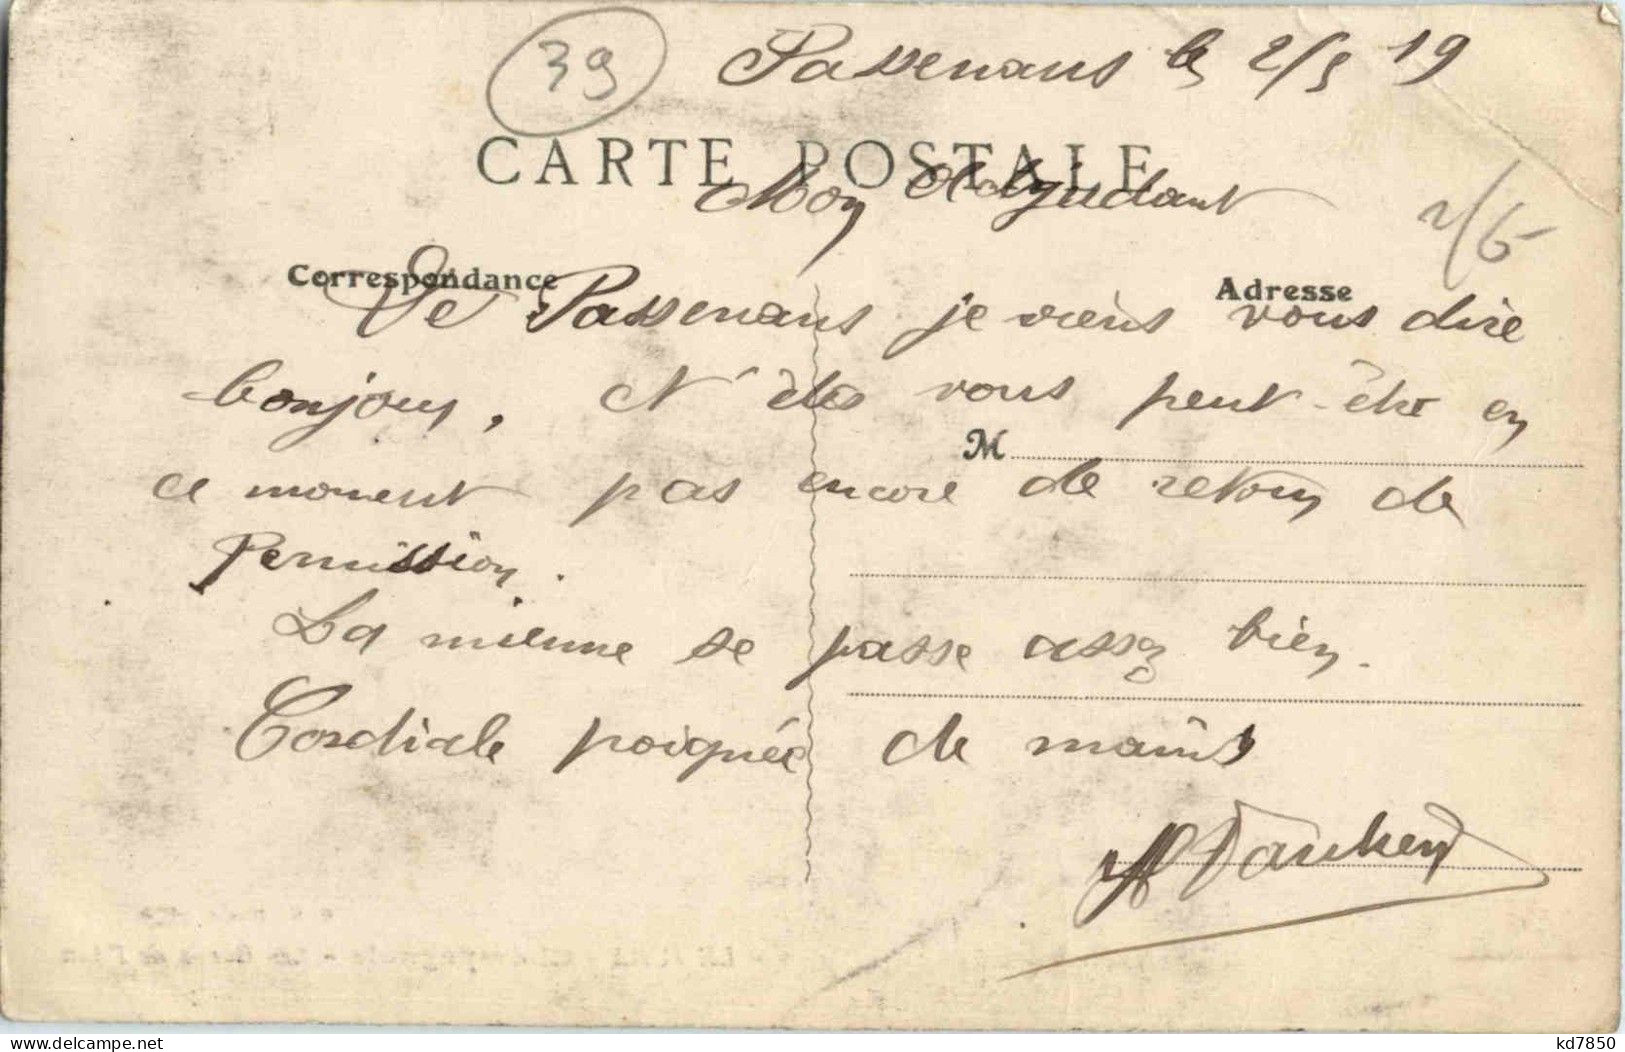 39
Passenans le 2/5 19
CARTE POSTALE
Mon Adjudant
2/6
Correspondance
Adresse
De Passenans je viens vous dire
bonjour, N'êtes vous peut-être en
M
ce moment pas encore de retour de
Permission.
La mienne se passe assez bien.
Cordiale poignée de mains
kd7850